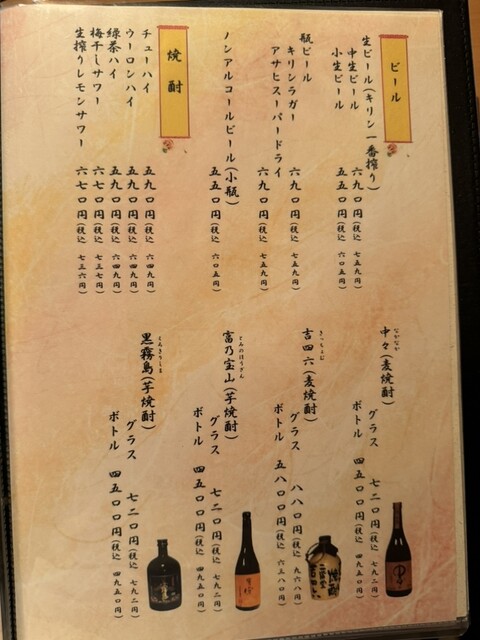 ビール
生ビール(キリン一番搾り)
中生ビール 六九〇円(税込 七五九円)
小生ビール 五五〇円(税込 六〇五円)
瓶ビール
キリンラガー 六九〇円(税込 七五九円)
アサヒスーパードライ 六九〇円(税込 七五九円)
ノンアルコールビール(小瓶) 五五〇円(税込 六〇五円)
焼酎
チューハイ 五九〇円(税込 六四九円)
ウーロンハイ 五九〇円(税込 六四九円)
緑茶ハイ 五九〇円(税込 六四九円)
梅干しサワー 六七〇円(税込 七三七円)
生搾りレモンサワー 六七〇円(税込 七三六円)
なかなか
中々(麦焼酎)
グラス 七二〇円(税込 七九二円)
ボトル 四五〇〇円(税込 四九五〇円)
きっちょむ
吉四六(麦焼酎)
グラス 八八〇円(税込 九六八円)
ボトル 五八〇〇円(税込 六三八〇円)
とみのほうざん
富乃宝山(芋焼酎)
グラス 七二〇円(税込 七九二円)
ボトル 四五〇〇円(税込 四九五〇円)
くろきりしま
黒霧島(芋焼酎)
グラス 七二〇円(税込 七九二円)
ボトル 四五〇〇円(税込 四九五〇円)